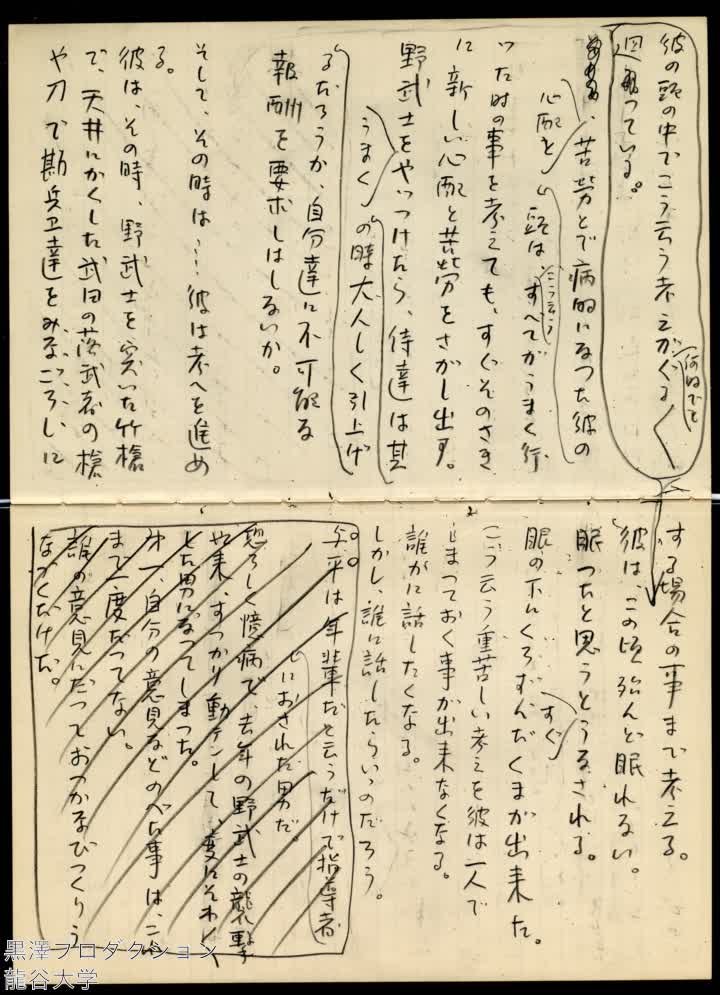 彼の頭の中でこう云う考えがぐる
何时でも
廻っている。
心配と
、苦労とで病的になつた彼の
頭は、すべてがうまく行
こう云う
つた時の事を考えても、すぐそのさき
に新しい心配と苦労をさがし出す。
野武士をやっつけたら、侍達は其
うまく
の時大人しく引上げ
るだろうか、自分達に不可能な
報酬を要求しはしないか。
そして、その時は…彼は考へを進め
る。
彼は、その時、野武士を突いた竹槍
で、天井にかくした武田の落武者の槍
や刀で勘兵ヱ達をみなごろしに
する場合の事まで考える。
彼は、この頃殆んど眠れない。
眠つたと思うとうなされる。
すぐ
眼の下にくろずんだくまが出来た。
こう云う重苦しい考えを彼は一人で
しまつておく事が出来なくなる。
誰かに話したくなる。
しかし、誰に話したらいゝのだろう。
与平は年輩だと云うだけで指導者
におされた男だ。
恐ろしく憶病で、去年の野武士の襲撃
や来、すつかり動テンして、変にそわ〱
した男になつてしまつた。
才一、自分の意見などのべた事は、これ
まで一度だつてない。
誰の意見にだつておつかなびつくりう
なづくだけだ。
黒澤プロダクション
龍谷大学